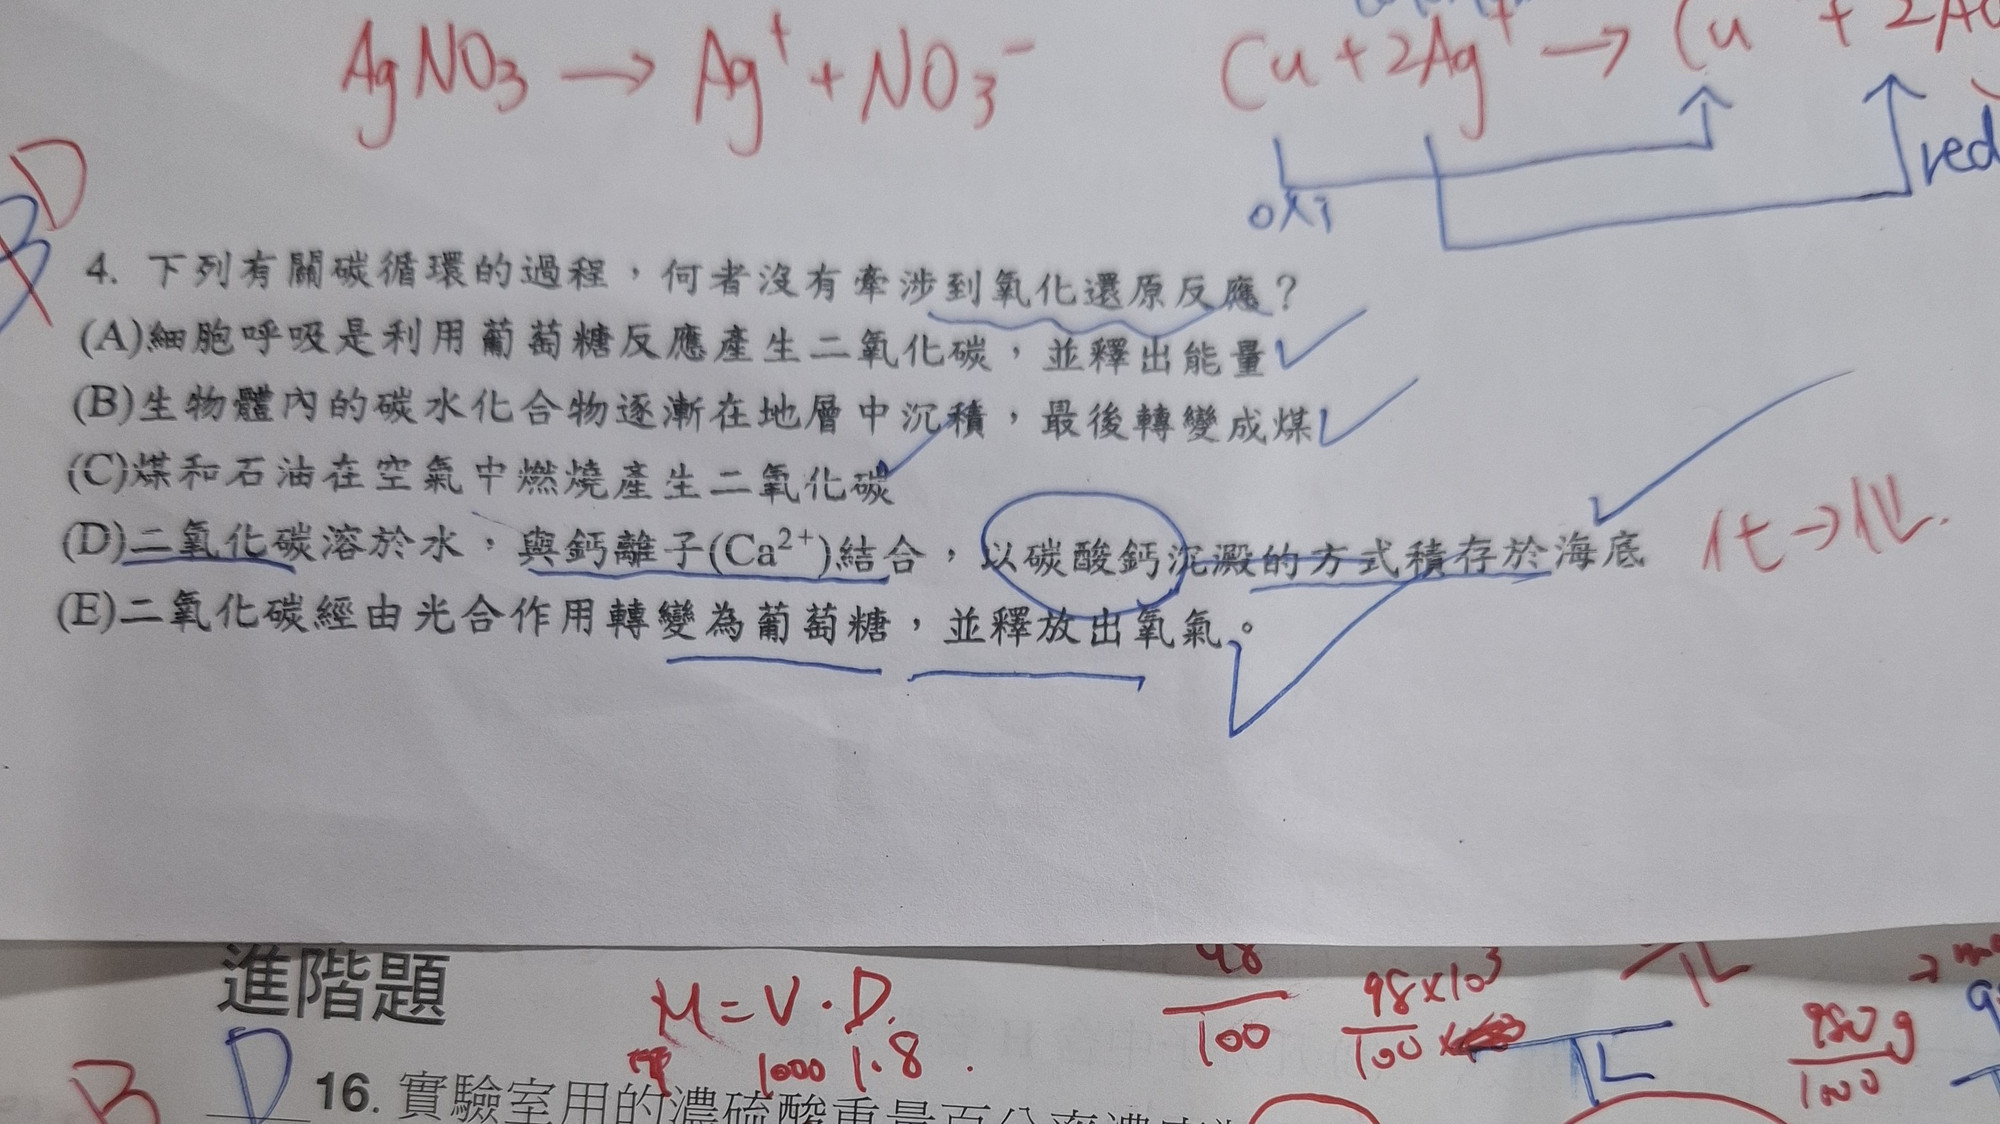 AgNO₃ → Ag⁺ + NO₃⁻
Cu + 2Ag⁺ → Cu + 2Ag
oxi
red
D
B
4. 下列有關碳循環的過程，何者沒有牽涉到氧化還原反應？
(A)細胞呼吸是利用葡萄糖反應產生二氧化碳，並釋出能量
(B)生物體內的碳水化合物逐漸在地層中沉積，最後轉變成煤
(C)煤和石油在空氣中燃燒產生二氧化碳
(D)二氧化碳溶於水，與鈣離子(Ca²⁺)結合，以碳酸鈣沉澱的方式積存於海底
化→化.
(E)二氧化碳經由光合作用轉變為葡萄糖，並釋放出氧氣。
進階題
M = V · D.
1000 1.8
98/100
98×10³/100
980g/100
B
D
16. 實驗室用的濃硫酸重量百分率濃度